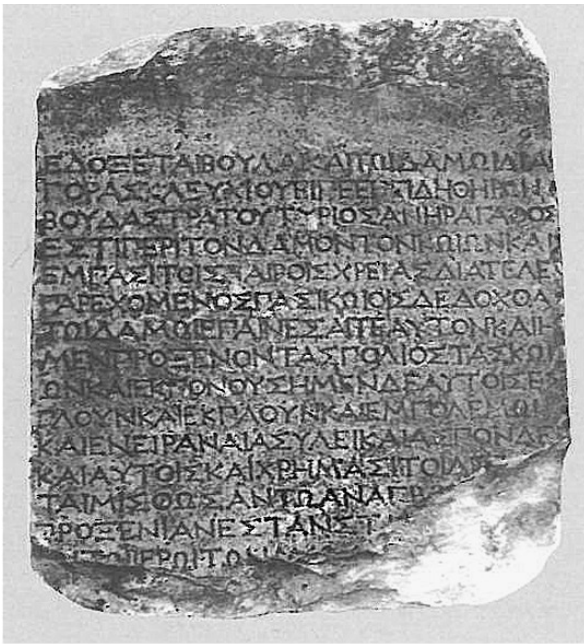 ΕΔΟΞΕΤΑΙΒΟΥΛΑΚΑΙΤΩΙΔΑΜΩΙΔΙΑ
ΓΟΡΑΣΚΛΕΥΧΙΟΥΕΙΠΕΕΠΕΙΔΗΘΗΡΩΝ
ΒΟΥΔΑΣΤΡΑΤΟΥΤΥΡΙΟΣΑΝΗΡΑΓΑΘΟΣ
ΕΣΤΙΠΕΡΙΤΟΝΔΑΜΟΝΤΟΝΚΩΙΩΝΚΑΙ
ΕΜΠΑΣΙΤΟΙΣΚΑΙΡΟΙΣΧΡΕΙΑΣΔΙΑΤΕΛΕ
ΠΑΡΕΧΟΜΕΝΟΣΠΑΣΙΚΩΙΟΙΣΔΕΔΟΧΘΑ
ΤΩΙΔΑΜΩΙΕΠΑΙΝΕΣΑΙΤΕΑΥΤΟΝΚΑΙΗ
ΜΕΝΠΡΟΞΕΝΟΝΤΑΣΠΟΛΙΟΣΤΑΣΚΩΙ
ΩΝΚΑΙΕΚΓΟΝΟΥΣΗΜΕΝΔΕΑΥΤΟΙΣΕΣ
ΠΛΟΥΝΚΑΙΕΚΠΛΟΥΝΚΑΙΕΜΠΟΛΕΜΩΙ
ΚΑΙΕΝΕΙΡΑΝΑΙΑΣΥΛΕΙΚΑΙΑΣΠΟΝΔΕ
ΚΑΙΑΥΤΟΙΣΚΑΙΧΡΗΜΑΣΙΤΟΙ
ΤΑΙΜΙΣΘΩΣΑΝΤΩΑΝΑΓΡ
ΠΡΟΞΕΝΙΑΝΕΣΤΑΝΣΤ